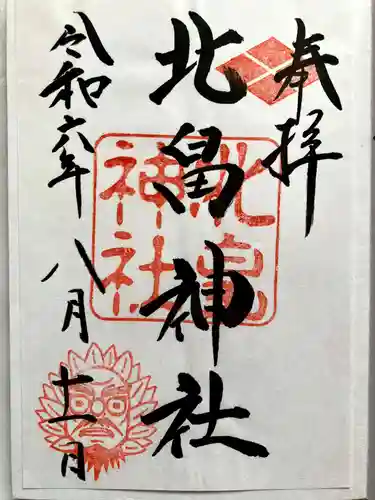 奉拝
北畠神社
北畠神社
令和六年八月十一月